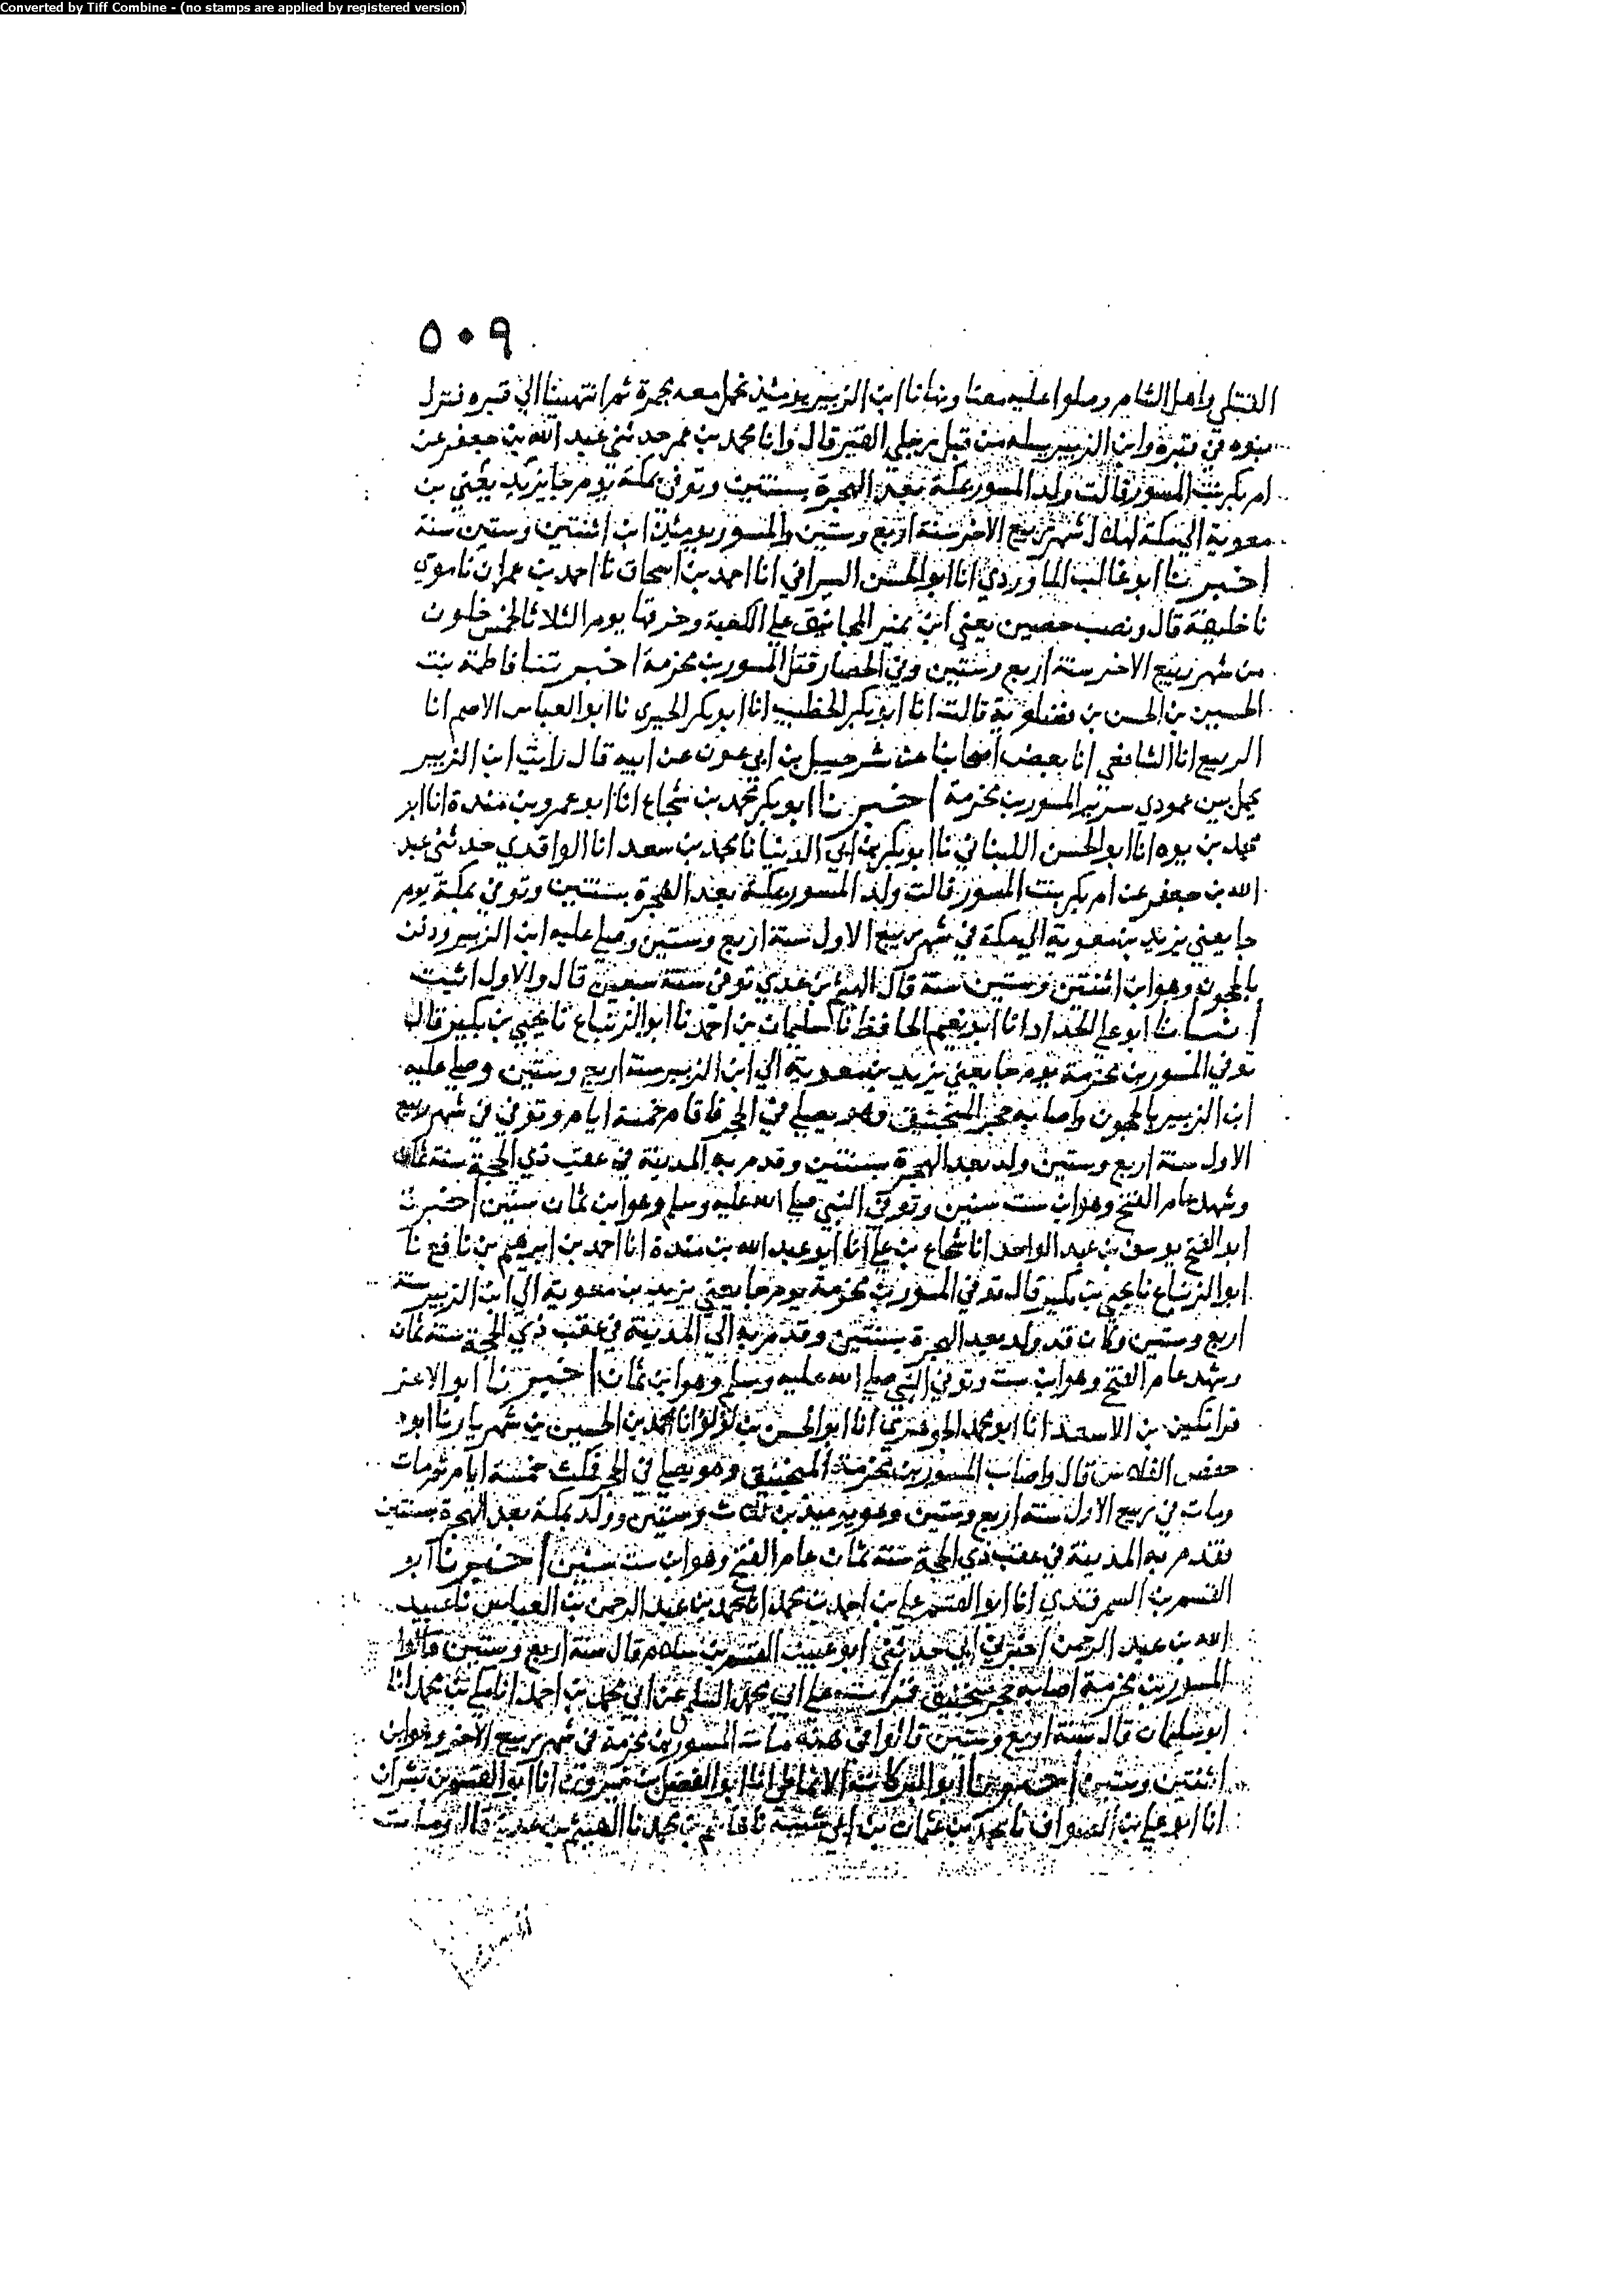 Converted by Tiff Combine - (no stamps are applied by registered version)
٥٠٩
القتلى واهل الشام وصلوا عليه معنا ونهانا ابن الزبير يومئذ نحمل معه مجمرة ثم انتهينا الى قبره فنزل
بنوه في قبره وابن الزبير يسله من قبل رجلي القبر قال وانا محمد بن عمر حدثني عبد الله بن جعفر عن
ام بكر بنت المسور قالت ولد المسور بمكة بعد الهجرة بسنتين وتوفي بمكة يوم جا يزيد يعني بن
معوية الي مكة لهلال شهر ربيع الاخر سنة اربع وستين والمسور يومئذ ابن اثنتين وستين سنة
اخبرنا ابو غالب الماوردي انا ابو الحسن السيرافي انا احمد بن اسحاق نا احمد بن عمران نا موسي
نا خليفة قال ونصب حصين يعني ابن نمير المجانيق علي الكعبة وحرقها يوم الثلاثا لخمس خلون
من شهر ربيع الاخر سنة اربع وستين وفي الحصار قتل المسور بن مخرمة اخبرتنا فاطمة بنت
الحسين بن الحسن بن فضلوية قالت انا ابو بكر الخطيب انا ابو بكر الحيري نا ابو العباس الاصم انا
الربيع انا الشافعي انا بعض اصحابنا عن شرحبيل بن ابي عون عن ابيه قال رايت ابن الزبير
يحمل بين عمودي سرير المسور بن مخرمة اخبرنا ابو بكر محمد بن شجاع انا ابو عمرو بن مندة انا ابو
محمد بن يوه انا ابو الحسن اللبناني نا ابو بكر بن ابي الدنيا نا محمد بن سعد انا الواقدي حدثني عبد
الله بن جعفر عن ام بكر بنت المسور قالت ولد المسور بمكة بعد الهجرة بسنتين وتوفي بمكة يوم
جا يعني يزيد بن معوية الي مكة في شهر ربيع الاول سنة اربع وستين وصلي عليه ابن الزبير ودفن
بالحجون وهو ابن اثنتين وستين سنة قال الهيثم بن عدي توفي سنة سبعين قال والاول اثبت
انبانا ابو علي الحداد انا ابو نعيم الحافظ نا سليمان بن احمد نا ابو الزنباع نا يحيي بن بكير قال
توفي المسور بن مخرمة يوم جا يعني يزيد بن معوية الي ابن الزبير سنة اربع وستين وصلي عليه
ابن الزبير بالحجون واصابه حجر المنجنيق وهو يصلي في الحجر فاقام خمسة ايام وتوفي في شهر ربيع
الاول سنة اربع وستين ولد بعد الهجرة بسنتين وقدم به المدينة في عقب ذي الحجة سنة ثمان
وشهد عام الفتح وهو ابن ست سنين وتوفي النبي صلي الله عليه وسلم وهو ابن ثمان سنين اخبرنا
ابو الفتح يوسف بن عبد الواحد انا شجاع بن علي انا ابو عبد الله بن مندة انا احمد بن ابرهيم بن نافع نا
ابو الزنباع نا يحيي بن بكير قال توفي المسور بن مخرمة يوم جا يعني يزيد بن معوية الي ابن الزبير سنة
اربع وستين وكان قد ولد بعد الهجرة بسنتين وقدم به الي المدينة في عقب ذي الحجة سنة ثمان
وشهد عام الفتح وهو ابن ست وتوفي النبي صلي الله عليه وسلم وهو ابن ثمان اخبرنا ابو الاعز
قراتكين بن الاسعد انا ابو محمد الجوهري انا ابو الحسن بن لؤلؤ انا محمد بن الحسين بن شهريار نا ابو
حفص الفلاس قال واصاب المسور بن مخرمة المنجنيق وهو يصلي في الحجر فمكث خمسة ايام ثم مات
ومات في ربيع الاول سنة اربع وستين وهو يوميذ بن ثلاث وستين وولد بمكة بعد الهجرة بسنتين
فقدم به المدينة في عقب ذي الحجة سنة ثمان عام الفتح وهو ابن ست سنين اخبرنا ابو
القسم بن السمرقندي انا ابو القسم علي بن احمد بن محمد انا محمد بن عبد الرحمن بن العباس نا عبيد
الله بن عبد الرحمن اخبرني ابي حدثني ابو عبيد القسم بن سلام قال سنة اربع وستين قالوا
المسور بن مخرمة اصابه حجر منجنيق قرات علي ابي محمد السلمي عن ابي محمد بن احمد انا مكي بن محمد انا
ابو سليمان قال سنة اربع وستين قالوا في هذه مات المسور بن مخرمة في شهر ربيع الاخر وهو ابن
اثنتين وستين اخبرنا ابو البركات الانماطي انا ابو الفضل بن خيرون انا ابو القسم بن بشران
انا ابو علي بن الصواف نا محمد بن عثمان بن ابي شيبة نا هاشم بن محمد نا الهيثم بن عدي قال ومات